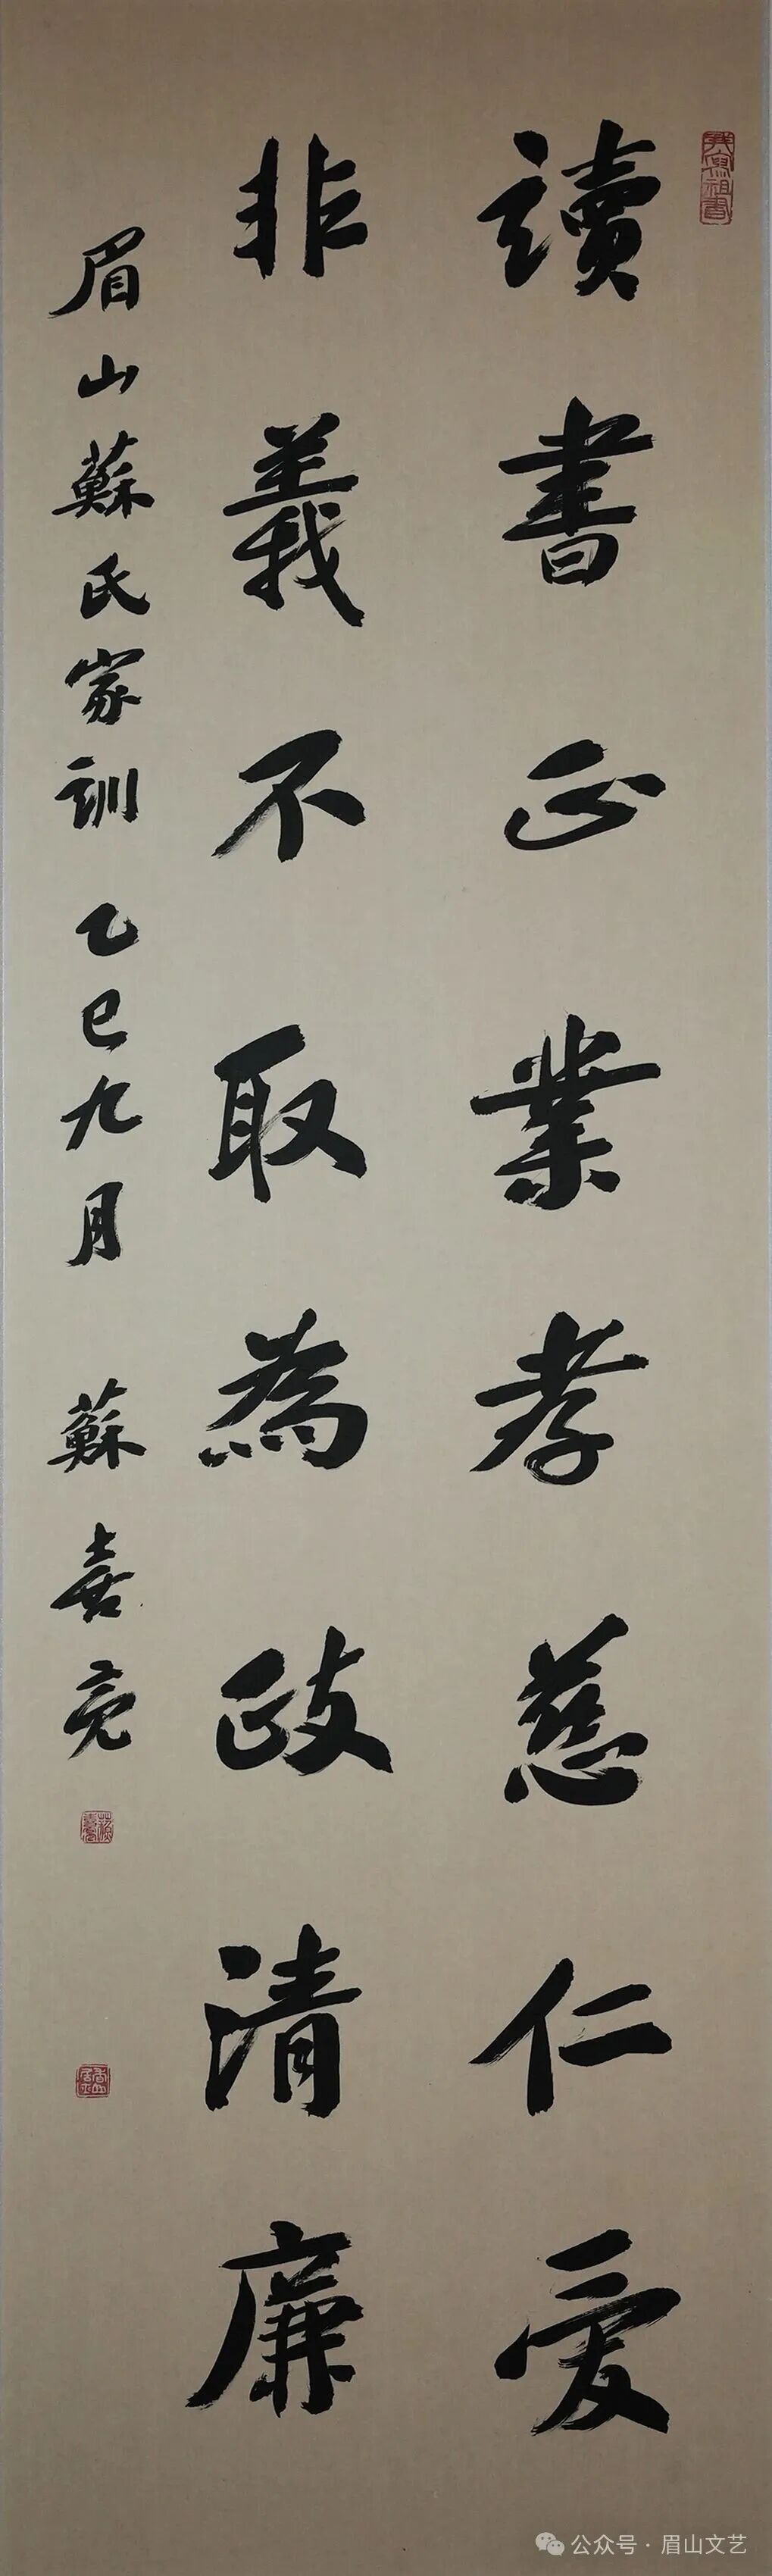 讀書正業孝慈仁愛
非義不取為政清廉
眉山蘇氏家訓 乙巳九月 蘇喜亮
公众号·眉山文艺